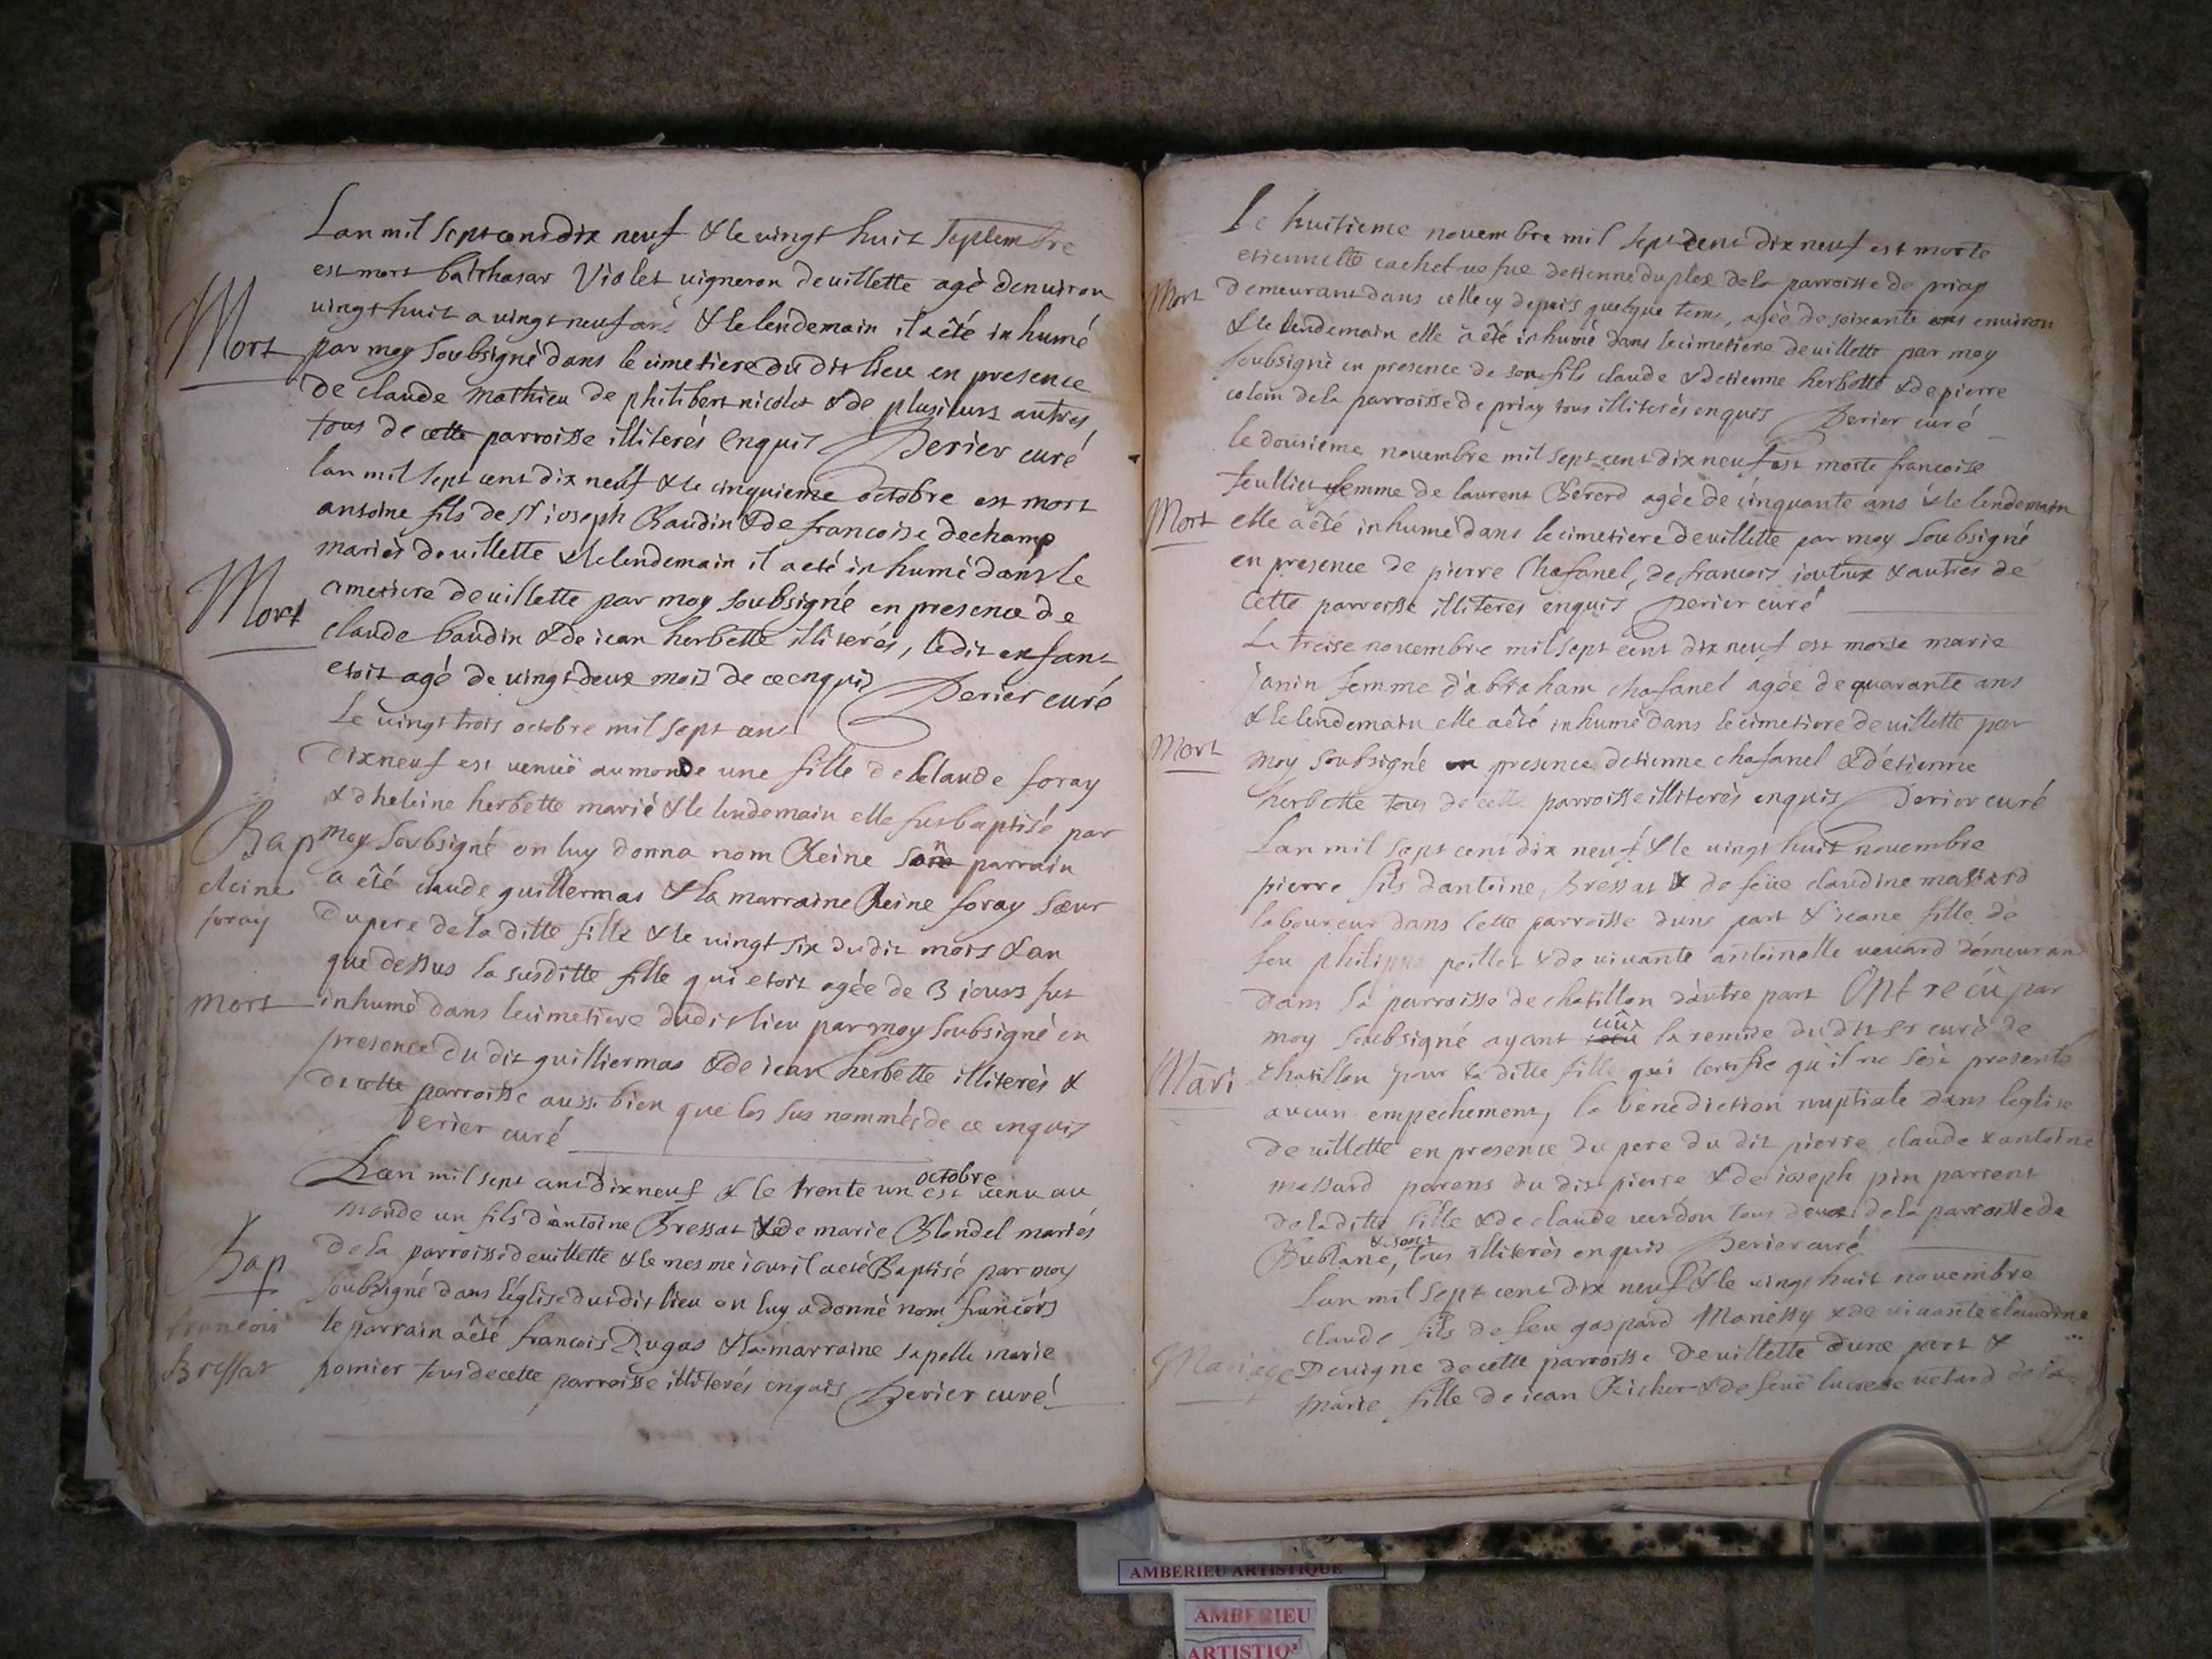 Lan mil sept cens dix neuf & le vingt huit septembre
est mort balthasar Violet vigneron de villette agé denviron
vingt huit a vingt neuf ans & le lendemain il a été inhumé
Mort par moy soubsigné dans le cimetiere du dit lieu en presence
de claude mathieu de philibert nicolet & de plusieurs autres
tous de cette parroisse illiterés enquis Perier curé
lan mil sept cent dix neuf & le cinquieme octobre est mort
antoine fils de sr ioseph Baudin & de francoise dechamp
mariés de villette & le lendemain il a eté inhumé dans le
Mort cimetiere de villette par moy soubsigné en presence de
claude baudin & de iean herbette illiterés, ledit enfant
etoit agé de vingt deux mois de ce enquis Perier curé
Le vingt trois octobre mil sept cens
dixneuf est venuë au monde une fille de Claude foray
& dheleine herbette marié & le lendemain elle fut baptisé par
Bap moy soubsigné on luy donna nom Reine son parrain
cleine a été claude guillermas & la marraine Reine foray sœur
foray du pere de la ditte fille & le vingt six du dit mois & an
que dessus la susditte fille qui etoit agée de 3 iours fut
mort inhumé dans le cimetiere dudit lieu par moy soubsigné en
presence du dit guilliermas & de iean herbette illiterés &
de cette parroisse aussi bien que les sus nommés de ce enquis
Perier curé
Lan mil sept cens dixneuf & le trente un octobre est venu au
monde un fils d'antoine Bressat & de marie Blondel mariés
Bap de la parroisse de villette & le mesme iour il a eté Baptisé par moy
soubsigné dans léglise dudit lieu on luy a donné nom francois
francois le parrain a été francois Dugas & la marraine sapelle marie
Bressat pomier tous de cette parroisse illiterés enquis Perier curé
Le huitieme novembre mil sept cens dix neuf est morte
etiennette cachet vefue detienne duplex de la parroisse de priay
Mort demeurant dans celle cy depuis quelque tems, agée de soixante ans environ
& le lendemain elle a été inhumé dans le cimetiere de villette par moy
soubsigné en presence de son fils claude & detienne herbette & de pierre
colom de la parroisse de priay tous illiterés enquis Perier curé
le dousieme novembre mil sept cent dix neuf est morte francoise
feulliet femme de laurent Bererd agée de cinquante ans & le lendemain
Mort elle a été inhumé dans le cimetiere de villette par moy soubsigné
en presence de pierre Chafanel, de francois ioutux & autres de
cette parroisse illiterés enquis Perier curé
Le treise novembre mil sept cent dix neuf est morte marie
ianin femme d'abraham chafanel agée de quarante ans
& le lendemain elle a été inhumé dans le cimetiere de villette par
Mort moy soubsigné en presence detienne chafanel & d'étienne
herbette tous de cette parroisse illiterés enquis Perier curé
Lan mil sept cens dix neuf & le vingt huit novembre
pierre fils dantoine Bressat & de feüe claudine massard
laboureur dans cette parroisse dune part & ieane fille de
feu philippe peillet & de vivante antoinette venard demeurant
dans la parroisse de chatillon dautre part Ont reçu par
moy soubsigné ayant vû la remise du dit sr curé de
Mari chatillon pour la ditte fille qui certifie qu'il ne sést presenté
aucun empechement, la benediction nuptiale dans leglise
de villette en presence du pere du dit pierre, claude & antoine
massard parens du dit pierre & de ioseph pin parrent
de la ditte fille & de claude verdon tous deux de la parroisse de
Bublane, & sont tous illiterés enquis Perier curé
Lan mil sept cent dix neuf & le vingt huit novembre
claude fils de feu gaspard Moriessy & de vivante claudine
Mariage Devigne de cette parroisse de villette dune part &
marie fille de iean Richer & de feuë lucresse vetard de la
AMBERIEU ARTISTIQUE
AMBERIEU
ARTISTIQ